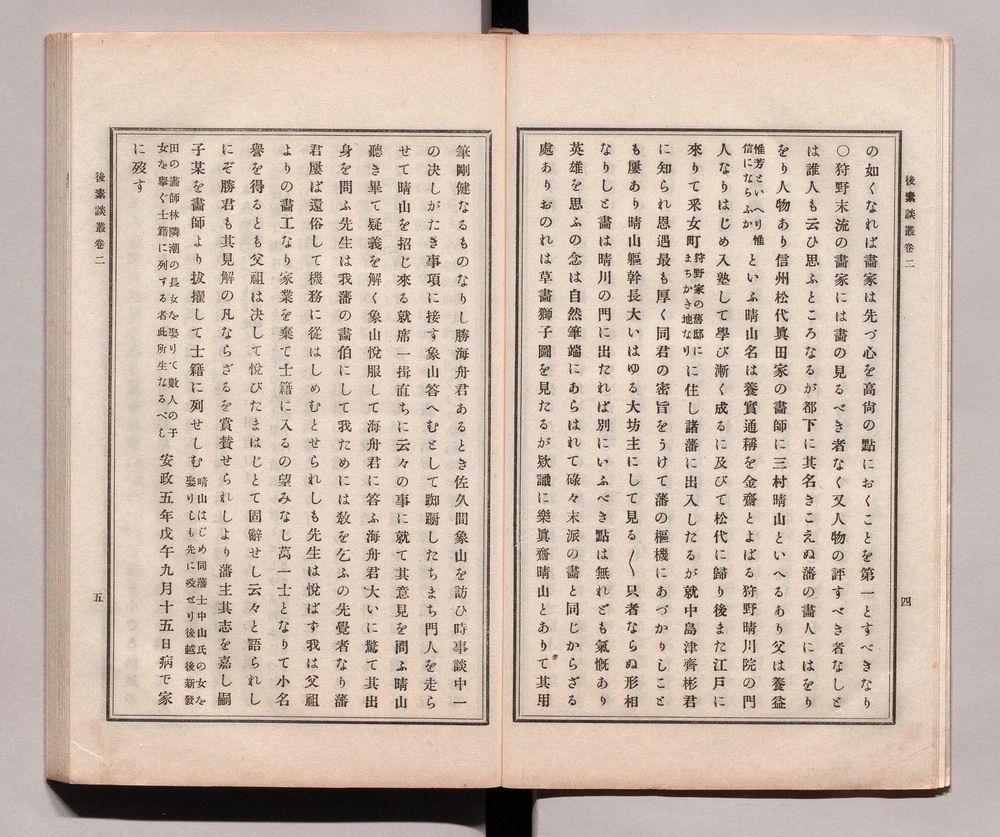 後素談叢卷二
四
の如くなれば畫家は先づ心を高尙の點におくことを第一とすべきなり
〇狩野末流の畫家には畫の見るべき者なく又人物の評すべき者なしと
は誰人も云ひ思ふところなるが都下に其名きこえぬ藩の畫人にはをり
をり人物あり信州松代眞田家の畫師に三村晴山といへるあり父は養益
惟芳といへり惟
信にならふか
といふ晴山名は養實通稱を金齋とよばる狩野晴川院の門
人なりはじめ入塾して學び漸く成るに及びて松代に歸り後また江戶に
來りて采女町
狩野家の舊邸に
まちかき地なり
に住し諸藩に出入したるが就中島津齊彬君
に知られ恩遇最も厚く同君の密旨をうけて藩の樞機にあづかりしこと
も屢あり晴山軀幹長大いはゆる大坊主にして見る〱只者ならぬ形相
なりしと畫は晴川の門に出たれば別にいふべき點は無れども氣慨あり
英雄を思ふの念は自然筆端にあらはれて碌々末派の畫と同じからざる
處ありおのれは草畫獅子圖を見たるが欵識に樂眞齋晴山とありて其用
筆剛健なるものなりし勝海舟君あるとき佐久間象山を訪ひ時事談中一
の決しがたき事項に接す象山答へむとして踟蹰したちまち門人を走ら
せて晴山を招じ來る就席一揖直ちに云々の事に就て其意見を問ふ晴山
聽き畢て疑義を解く象山悅服して海舟君に答ふ海舟君大いに驚て其出
身を問ふ先生は我藩の畫伯にして我ためには敎を乞ふの先覺者なり藩
君屢ば還俗して機務に從はしめむとせられしも先生は悅ばす我は父祖
よりの畫工なり家業を棄て士籍に入るの望みなし萬一士となりて小名
譽を得るとも父祖は決して悅びたまはじとて固辭せし云々と語られし
にぞ勝君も其見解の凡ならざるを賞賛せられしより藩主其志を嘉し嗣
子某を畫師より拔擢して士籍に列せしむ
晴山はじめ同藩士中山氏の女を
娶りしも先に歿せり後越後新發
田の畫師林隣潮の長女を娶りて數人の子
女を擧ぐ士籍に列する者此所生なるべし
安政五年戊午九月十五日病で家
に歿す
後素談叢卷二
五